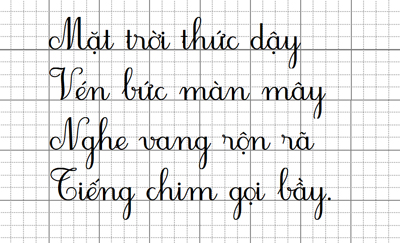 Mặt trời thức dậy
Vén bức màn mây
Nghe vang rộn rã
Tiếng chim gọi bầy.